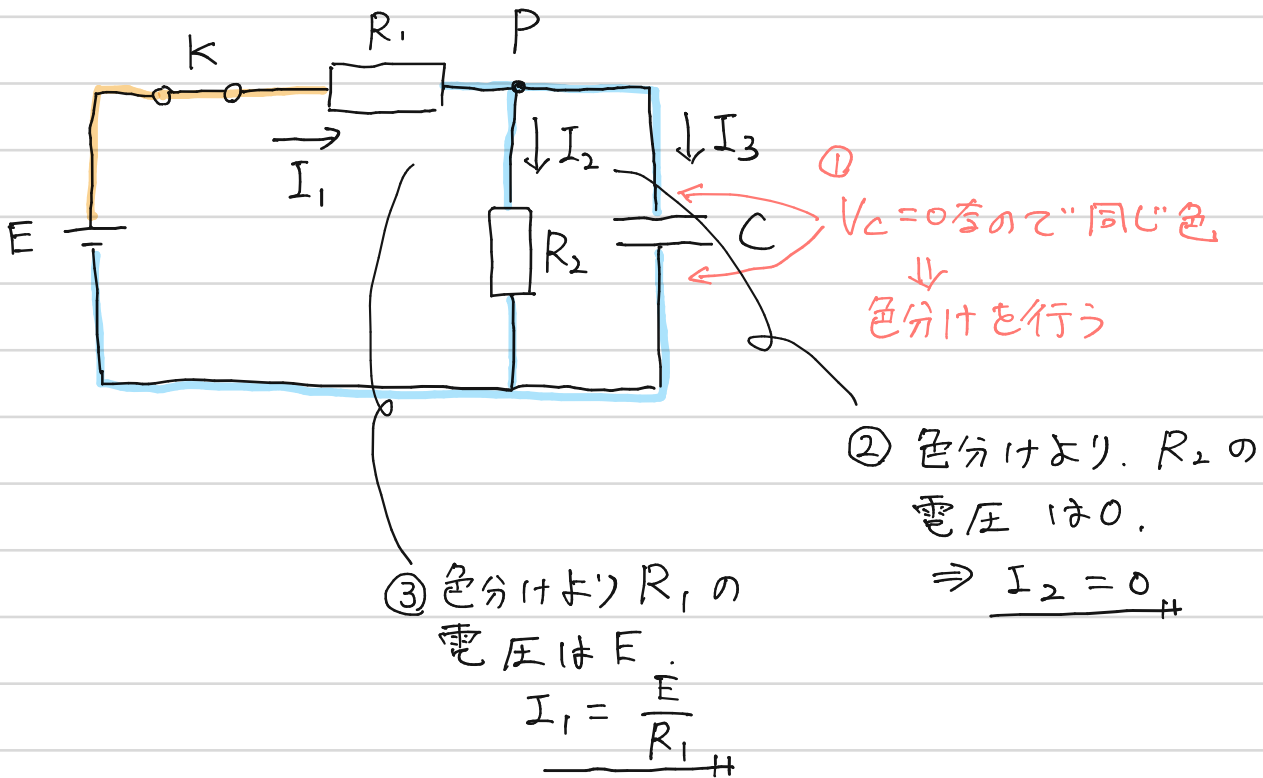 R₁
P
K
I₁
I₂
I₃
E
R₂
C
①
Vc=0なので同じ色
⇓
色分けを行う
② 色分けより. R₂の
電圧は0.
⇒ I₂ = 0
③ 色分けよりR₁の
電圧はE.
I₁ = E/R₁